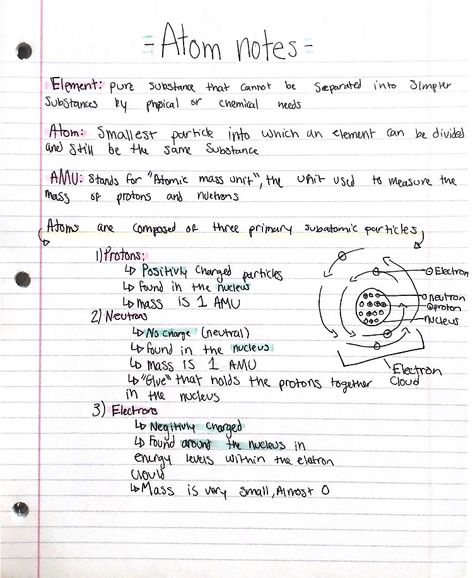 = Atom notes =
Element: pure substance that cannot be separated into simpler
substances by phpical or chemical needs
Atom: Smallest particle into which an element can be divided
and still be the same substance
AMU: Stands for "Atomic mass unit", the unit used to measure the
mass of protons and nuetrons
Atoms are composed of three primary subatomic particles
1) Protons:
↳ Positivly charged particles
↳ found in the nucleus
↳ mass is 1 AMU
2) Neutrons
↳ No charge (neutral)
↳ found in the nucleus
↳ mass is 1 AMU
↳ "Glue" that holds the protons together
in the nucleus
3) Electrons
↳ Negitivly charged
↳ Found around the nucleus in
energy levels within the eletron
cloud
↳ Mass is very small, Almost 0
Electron
neutron
proton
nucleus
Electron
Cloud